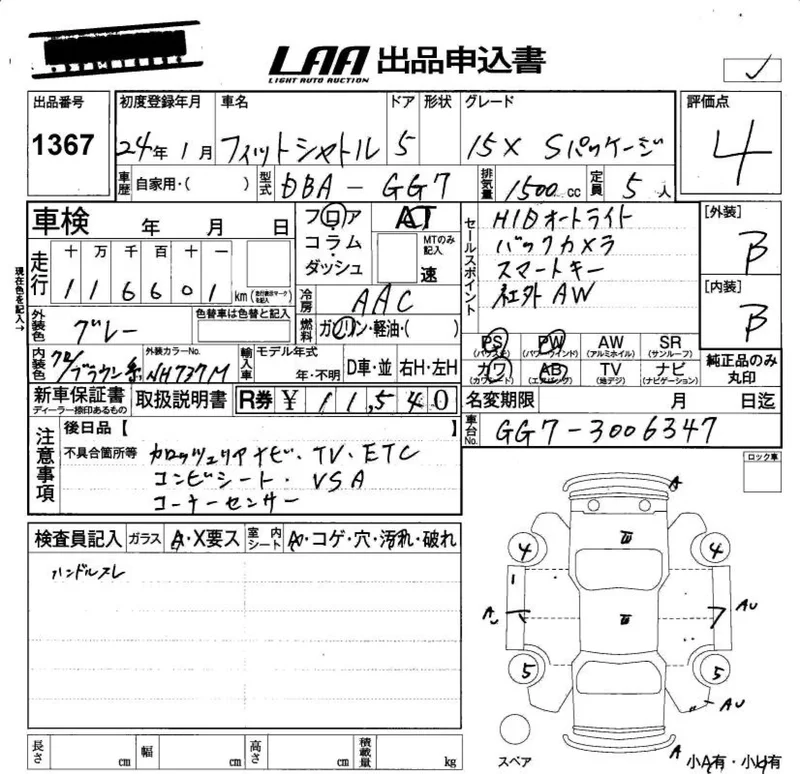 LAA 出品申込書
LIGHT AUTO AUCTION
出品番号
1367
初度登録年月
24年 1月
車名
フィットシャトル
ドア
5
形状
グレード
15X Sパッケージ
評価点
4
車歴
自家用・( )
型式
DBA-GG7
排気量
1500cc
定員
5人
車検 年 月 日
フロア
コラム
ダッシュ
AT
MTのみ記入
速
セールスポイント
HIDオートライト
バックカメラ
スマートキー
社外AW
[外装]
B
[内装]
B
現在色を記入→
走行
十 万 千 百 十 一
1 1 6 6 0 1
km
冷房
AAC
外装色
グレー
色替車は色替と記入
燃料
ガソリン・軽油・( )
PS (パワステ)
PW (パワーウインド)
AW (アルミホイル)
SR (サンルーフ)
カワ (カワシート)
AB (エアバック)
TV (地デジ)
ナビ (ナビゲーション)
純正品のみ
丸印
内装色
クロ/ブラウン系
外装カラーNo.
NH737M
輸入車
モデル年式
年・不明
D車・並
右H・左H
新車保証書
ディーラー捺印あるもの
取扱説明書
R券
¥ 11,540
名変期限 月 日迄
車台No.
GG7-3006347
注意事項
後日品【 】
不具合箇所等
カロッツェリアナビ・TV・ETC
コンビシート・VSA
コーナーセンサー
ロック車
検査員記入
ガラス
A・X要ス
室内
シート
A・コゲ・穴・汚れ・破れ
ハンドルスレ
A
4
4
A
AU
5
5
AU
スペア
A
小A有・小U有
長さ cm
幅 cm
高さ cm
積載量 kg